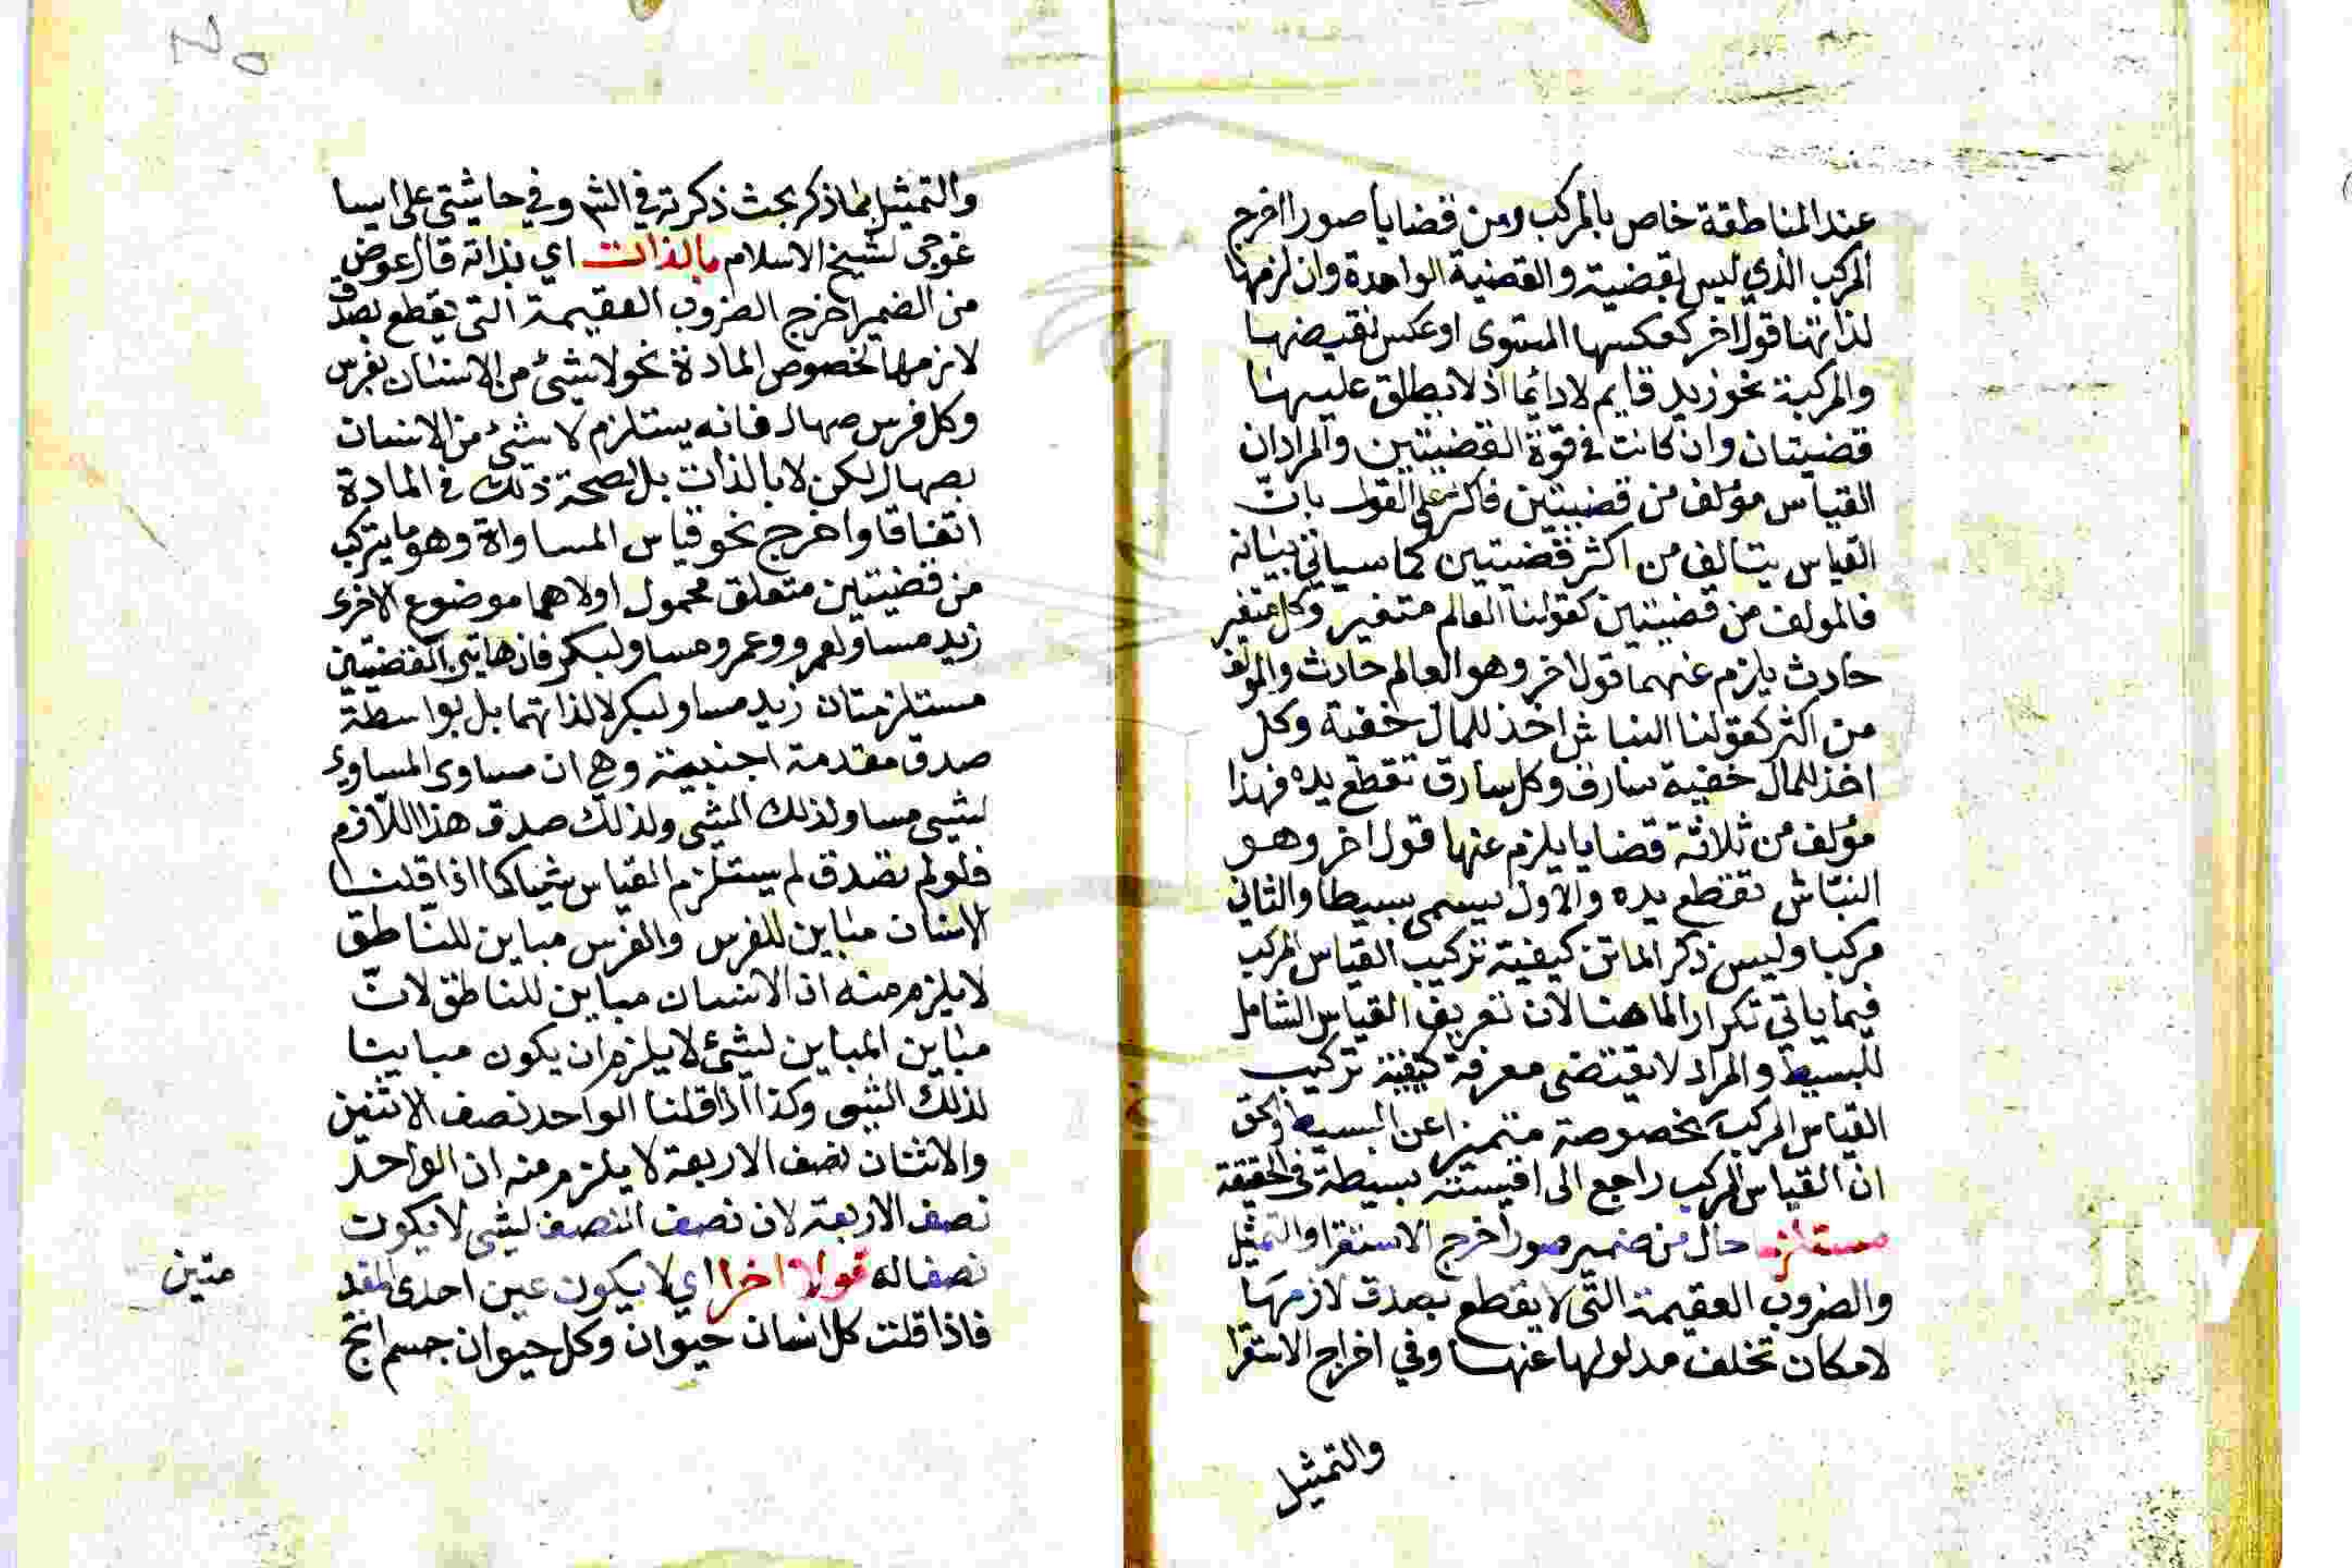 عند المناطقة خاص بالمركب ومن قضايا صورا اخرج
المركب الذي ليس بقضية والقضية الواحدة وان لزمها
لذاتها قول اخر كعكسها المستوى او عكس نقيضها
والمركبة نحو زيد قايم لا دايما اذ لا يطلق عليها
قضيتان وان كانت في قوة القضيتين والمراد ان
القياس مؤلف من قضيتين فاكثر على القول بانّ
القياس يتالف من اكثر قضيتين كما سياتي بيانه
فالمولف من قضيتين كقولنا العالم متغير وكل متغير
حادث يلزم عنهما قول اخر وهو العالم حادث والمولف
من اكثر كقولنا النباش اخذ للمال خفية وكل
اخذ للمال خفية سارق وكل سارق تقطع يده فهذا
مؤلف من ثلاثة قضايا يلزم عنها قول اخر وهو
النبّاش تقطع يده والاول يسمى بسيطا والثاني
مركبا وليس ذكر الماتن كيفية تركيب القياس المركب
فيما ياتي تكرارا لما هنا لان تعريف القياس الشامل
للبسيط والمراد لا يقتضى معرفة كيفية تركيب
القياس المركب بخصوصة متميزا عن البسيط والحق
ان القياس المركب راجع الى اقيسته بسيطة في الحقيقة
مستلزم حال من ضمير صور اخرج الاستقرا والتمثيل
والضروب العقيمة التّي لا يقطع بصدق لازمها
لامكان تخلف مدلولها عنها وفي اخراج الاستقرا
والتمثيل
والتمثيل بما ذكر بحث ذكرته في الشر وفي حاشيتى على ايسا
غوجى لشيخ الاسلام بالذات اي بذاته قال عوض
من الضمير اخرج الضروب العقيمة التى يقطع بصدق
لازمها لخصوص المادة نحو لا شئ من الانسان بفرس
وكل فرس صهال فانه يستلزم لا شئ من الانسان
بصهال لكن لا بالذات بل لصحة ذلك في المادة
اتفاقا واخرج نحو قياس المساواة وهو ما يتركب
من قضيتين متعلق محمول اولاهما موضوع الاخرى
زيد مساو لعمرو وعمرو مساو لبكر فان هاتين القضيتين
مستلزمتان زيد مساو لبكر لا لذاتهما بل بواسطة
صدق مقدمة اجنبية وهي ان مساوى المساوي
لشيى مساو لذلك الشى ولذلك صدق هذا اللازم
فلو لم تصدق لم يستلزم القياس شيا كما اذا قلنا
الانسان مباين للفرس والفرس مباين للناطق
لا يلزم منه ان الانسان مباين للناطق لانّ
مباين المباين لشئ لا يلزم ان يكون مباينا
لذلك الشى وكذا اذا قلنا الواحد نصف الاثنين
والاثنان نصف الاربعة لا يلزم منه ان الواحد
نصف الاربعة لان نصف النصف لشى لا يكون
نصفا له قولا اخرا اي لا يكون عين احدى المقد
متين
فاذا قلت كل انسان حيوان وكل حيوان جسم انتج